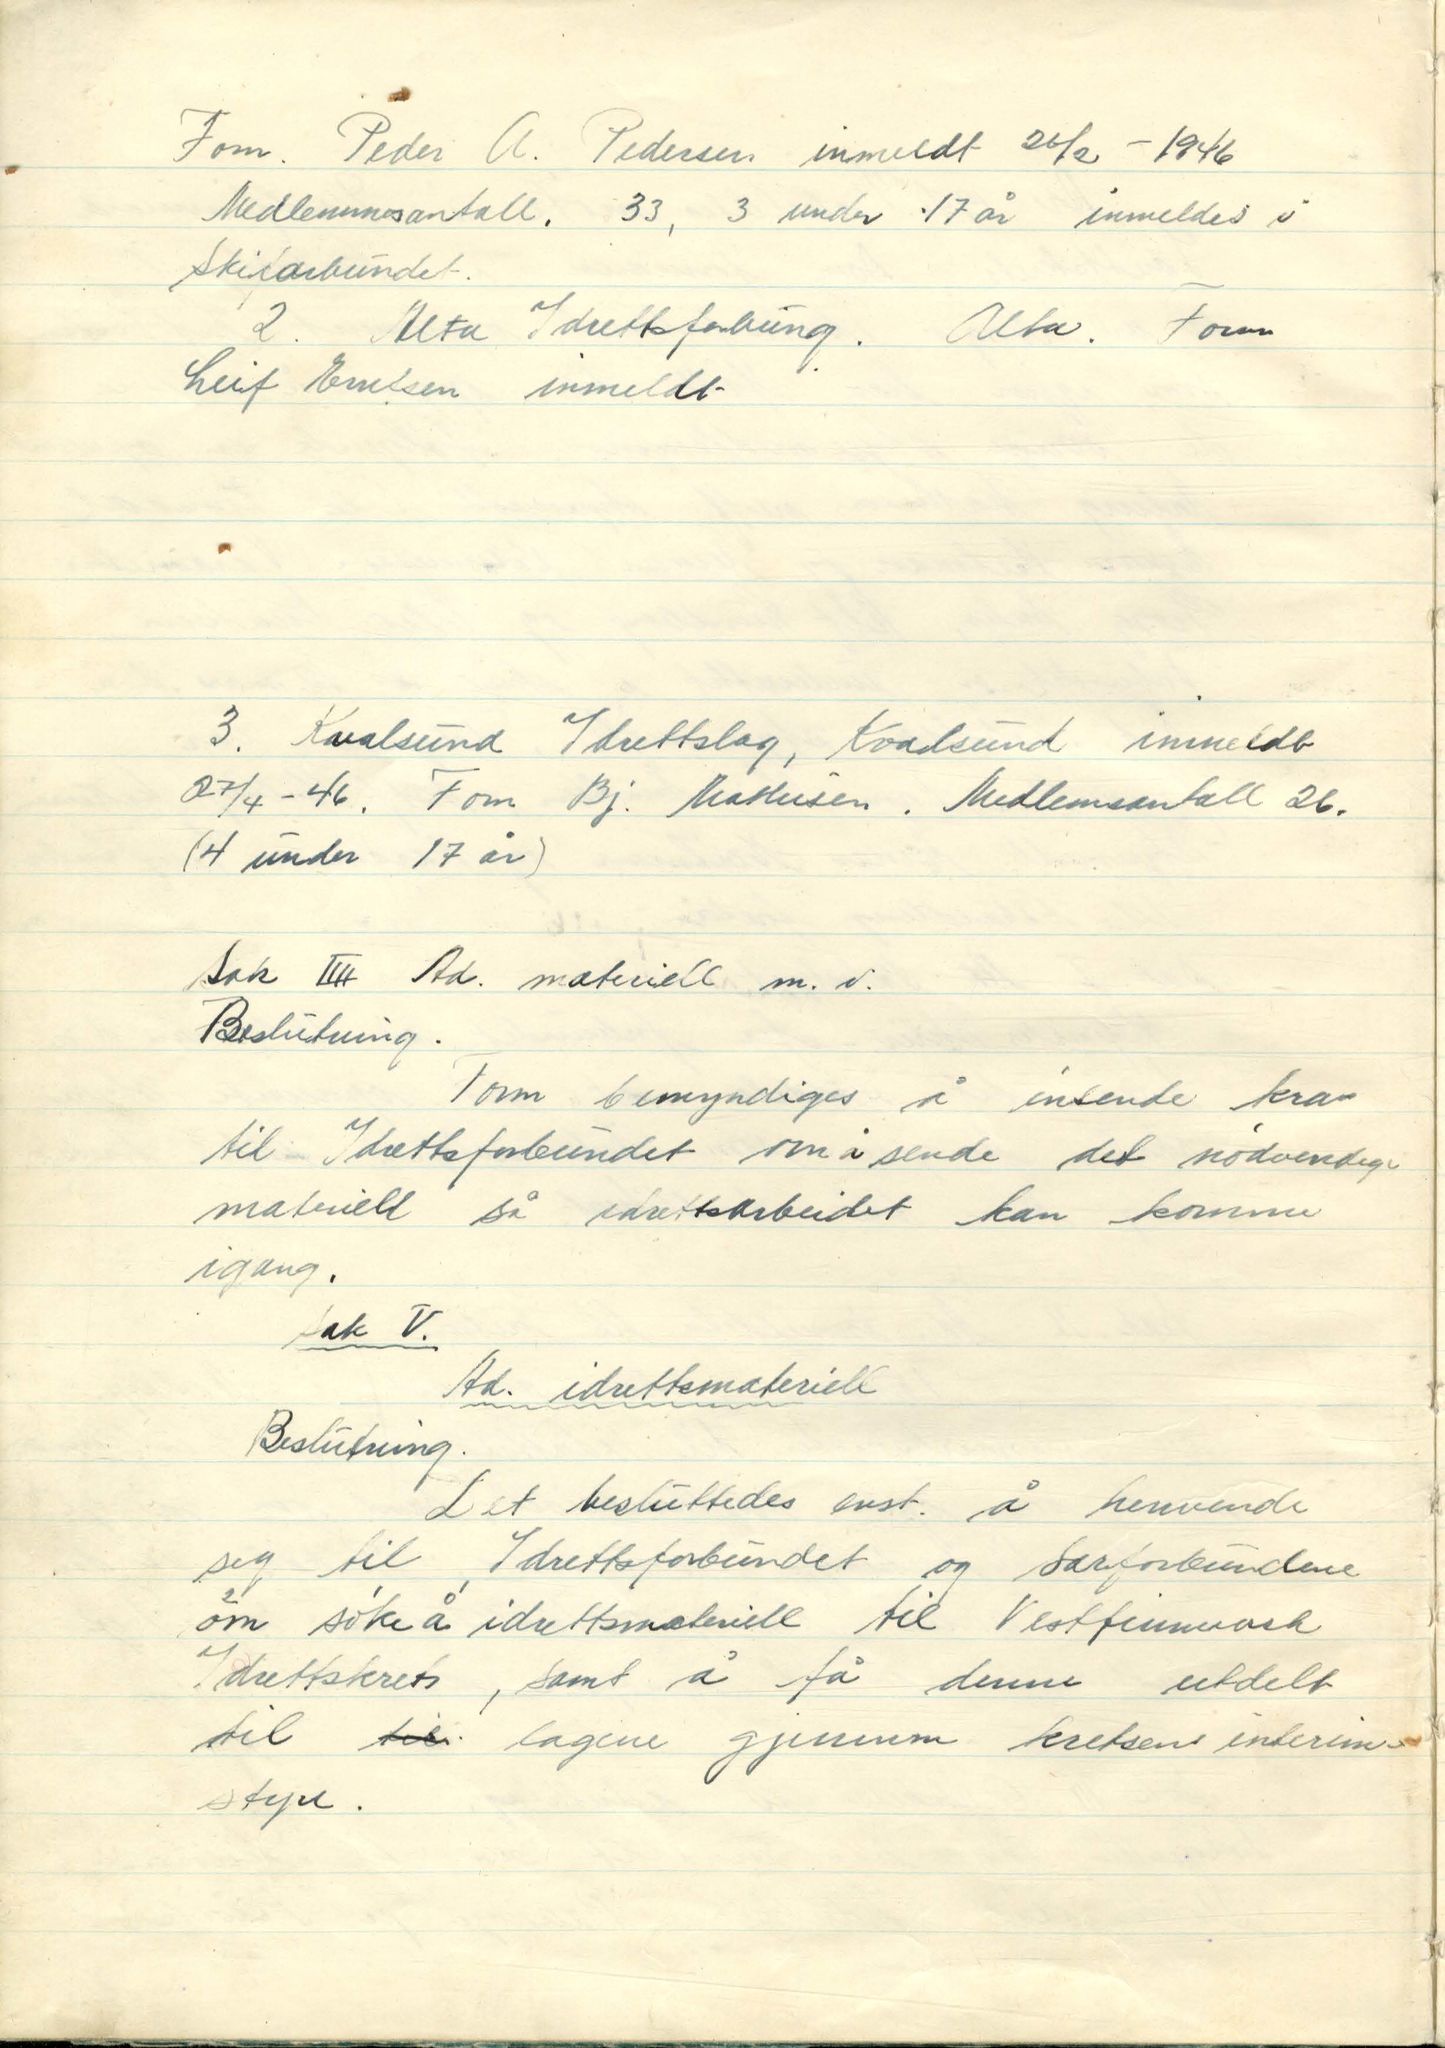 Fom. Peder A. Pedersen inmeldt 26/2 - 1946
Medlemmsantall. 33, 3 under 17 år inmeldes i
Skiforbundet.
2. Alta Idrettsforbung. Alta. Form
Leif inmeldt
3. Kvalsund Idrettslag, Kvalsund inmeldt
27/4 - 46. Fom Bj. Mathisen. Medlemsantall 26.
(4 under 17 år)
Sak IIII Ad. materiell m. v.
Beslutning.
Form bemyndiges å insende krav
til Idrettsforbundet om å sende det nödvendige
materiell så idrettsarbeidet kan komme
igang.
Sak V.
Ad. idrettsmateriell
Beslutning.
Det besluttedes enst. å henvende
seg til Idrettsforbundet og særforbundene
om söke å idrettsmateriell til Vestfinnmark
Idrettskrets, samt å få denne utdelt
til til lagene gjennem kretsens interims-
styre.